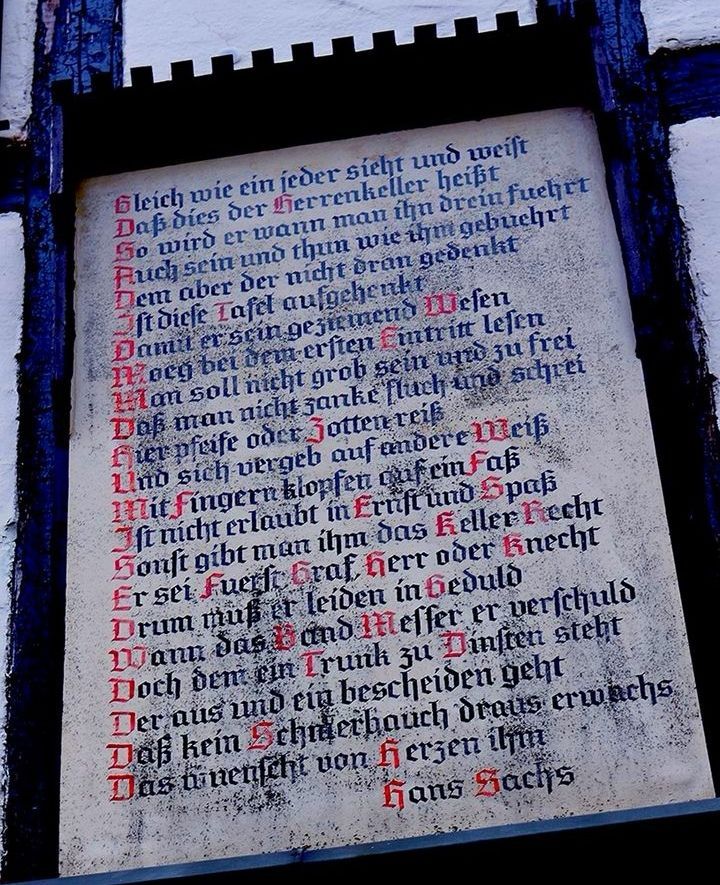 Gleich wie ein jeder sieht und weist
Daß dies der Herrenkeller heißt
So wird er wann man ihn drein fuehrt
Auch sein und thun wie ihm gebuehrt
Dem aber der nicht dran gedenkt
Ist diese Tafel aufgehenkt
Damit er sein geziemend Wesen
Moeg bei dem ersten Eintritt lesen
Man soll nicht grob sein und zu frei
Daß man nicht zanke fluch und schrei
Hier pfeife oder Zotten reiß
Und sich vergeb auf andere Weiß
Mit Fingern klopfen auf ein Faß
Ist nicht erlaubt in Ernst und Spaß
Sonst gibt man ihm das Keller Recht
Er sei Fuerst Graf, Herr oder Knecht
Drum muß er leiden in Geduld
Wann das Band Messer er verschuld
Doch dem ein Trunk zu Dinsten steht
Der aus und ein bescheiden geht
Daß kein Schmerbauch draus erwachs
Das wuenscht von Herzen ihm
Hans Sachs